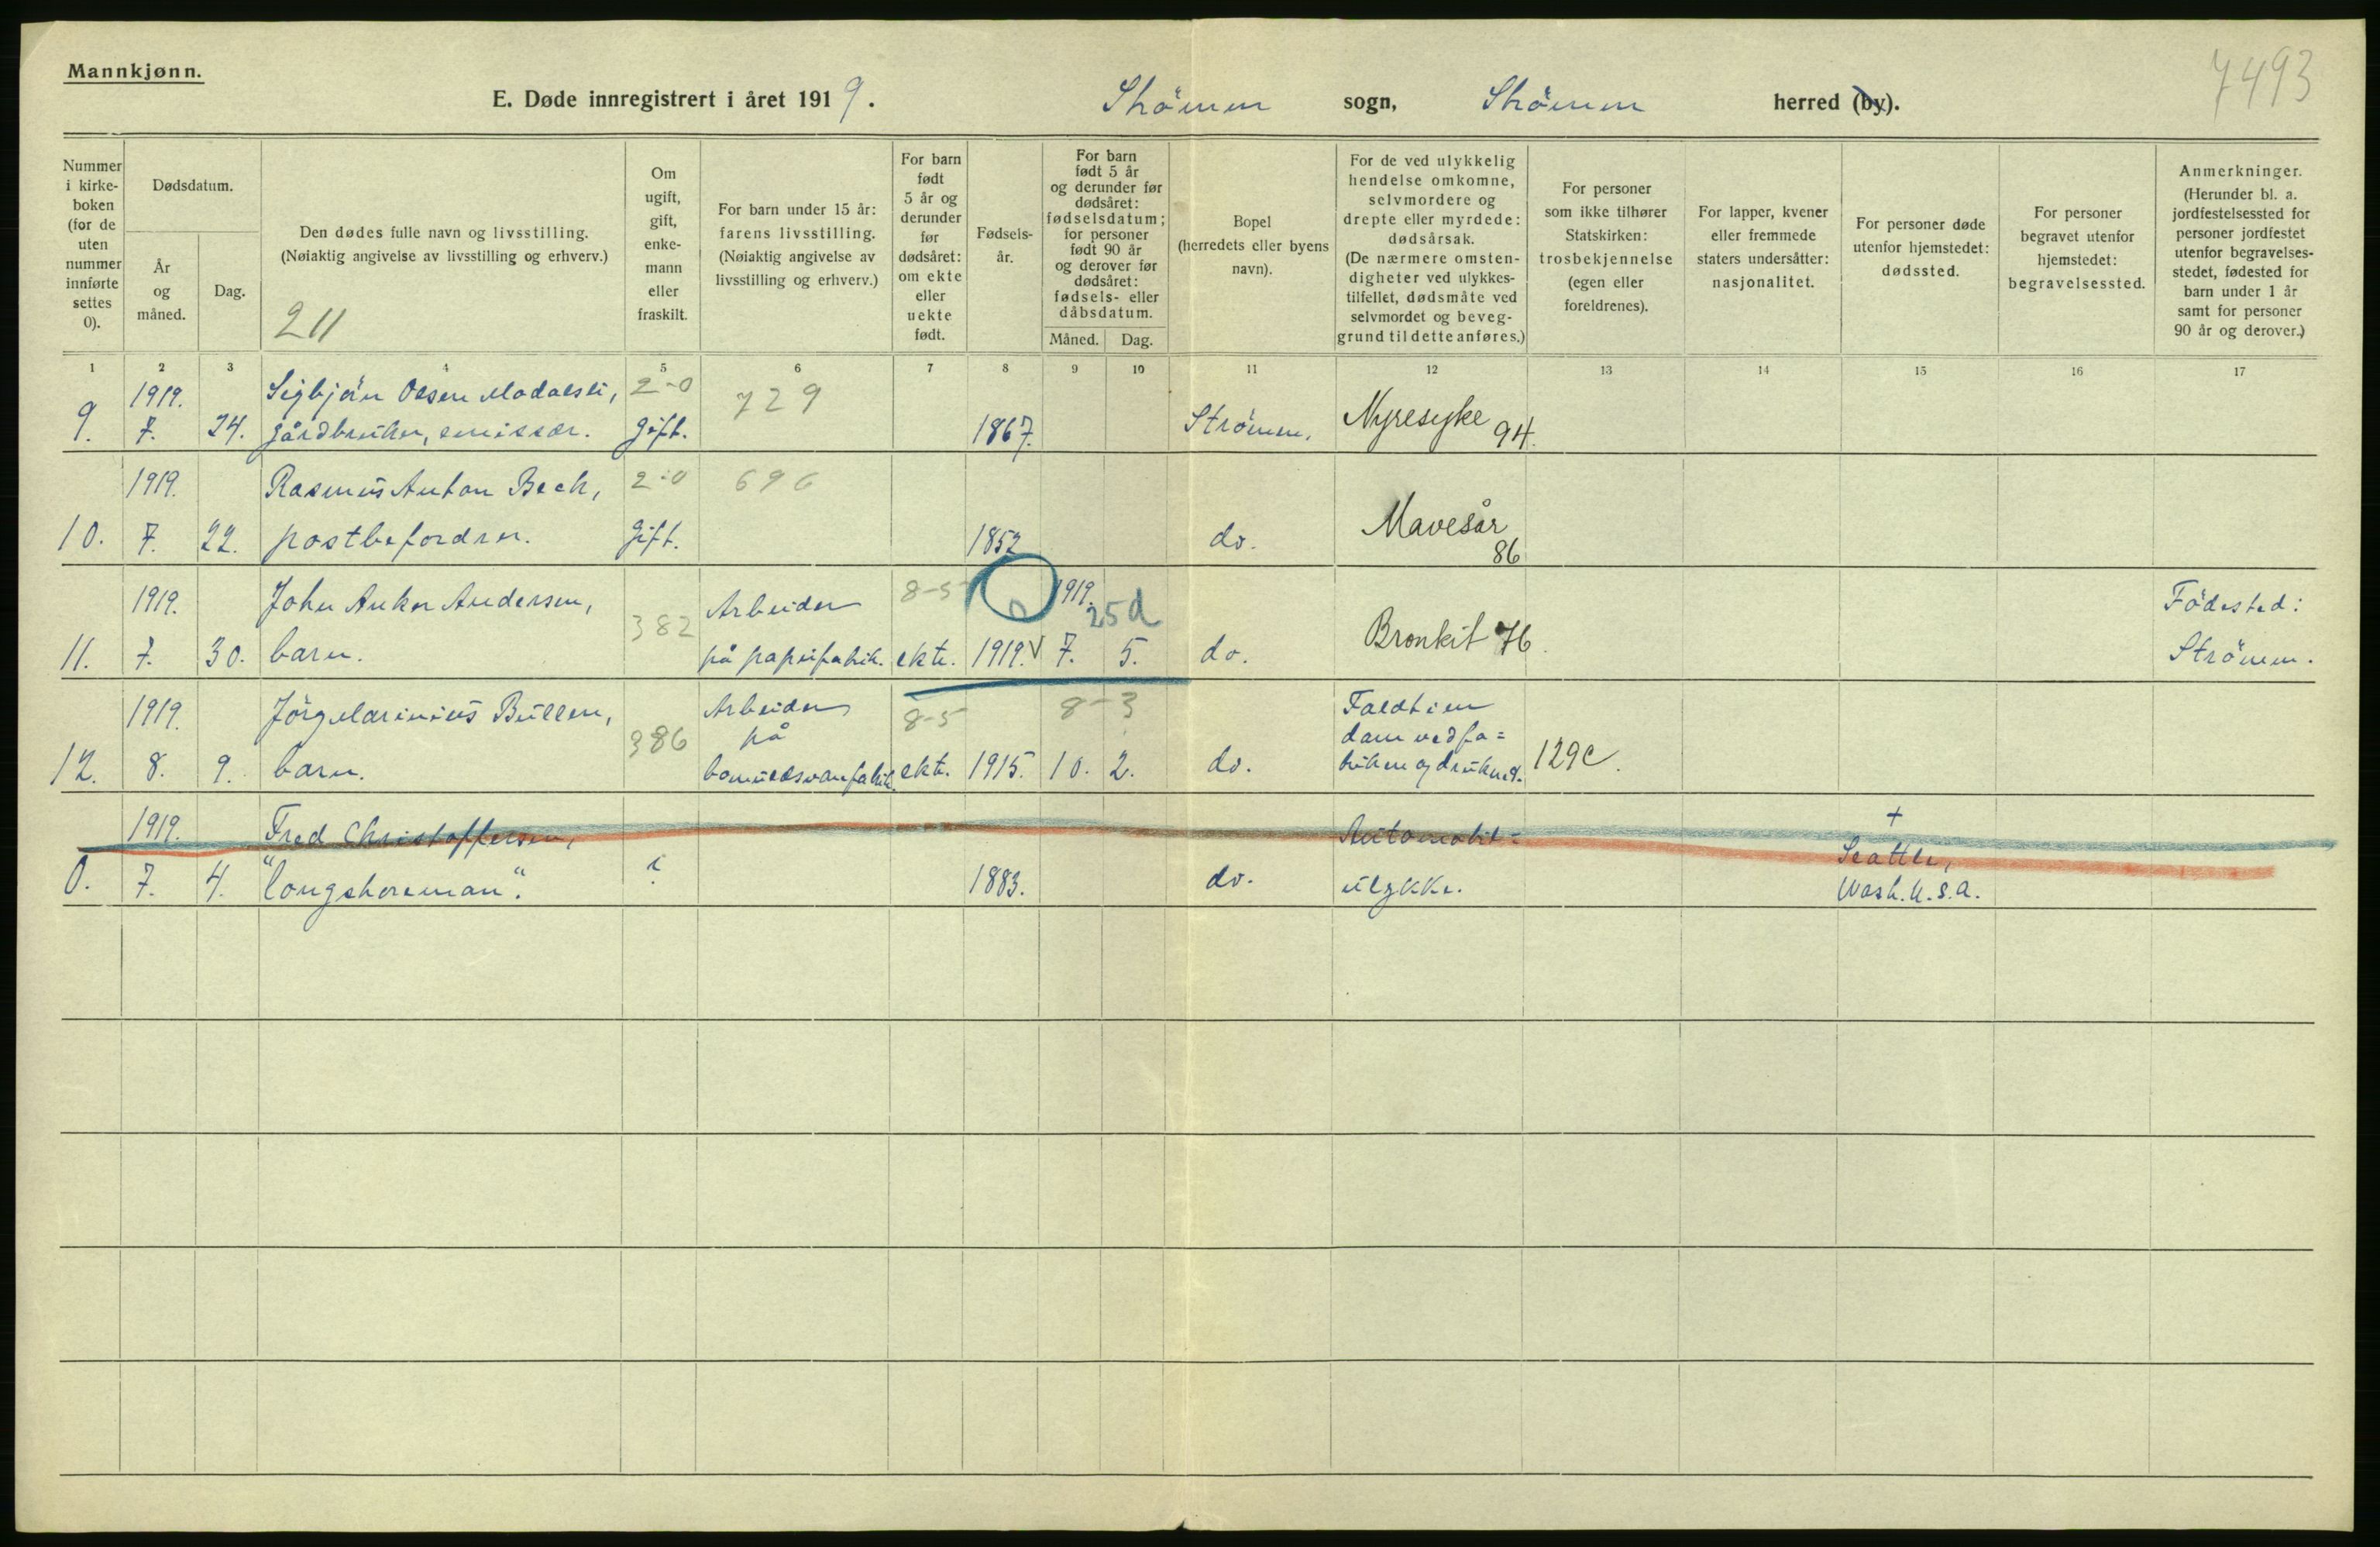 Mannkjønn.
E. Døde innregistrert i året 1919. Strömm sogn, Strömm herred (by).
7493
Nummer i kirke-boken (for de uten nummer innførte settes 0).
Dødsdatum.
År og måned.
Dag.
Den dødes fulle navn og livsstilling.
(Nøiaktig angivelse av livsstilling og erhverv.)
211
Om ugift, gift, enke-mann eller fraskilt.
For barn under 15 år: farens livsstilling.
(Nøiaktig angivelse av livsstilling og erhverv.)
For barn født 5 år og derunder før dødsåret: om ekte eller uekte født.
Fødsels-år.
For barn født 5 år og derunder før dødsåret: fødselsdatum; for personer født 90 år og derover før dødsåret: fødsels- eller dåbsdatum.
Måned. Dag.
Bopel (herredets eller byens navn).
For de ved ulykkelig hendelse omkomne, selvmordere og drepte eller myrdede: dødsårsak.
(De nærmere omsten-digheter ved ulykkes-tilfellet, dødsmåte ved selvmordet og beveg-grund til dette anføres.)
For personer som ikke tilhører Statskirken: trosbekjennelse (egen eller foreldrenes).
For lapper, kvener eller fremmede staters undersåtter: nasjonalitet.
For personer døde utenfor hjemstedet: dødssted.
For personer begravet utenfor hjemstedet: begravelsessted.
Anmerkninger.
(Herunder bl. a. jordfestelsessted for personer jordfestet utenfor begravelses-stedet, fødested for barn under 1 år samt for personer 90 år og derover.)
1 2 3 4 5 6 7 8 9 10 11 12 13 14 15 16 17
1919. Sigbjörn Olsen 2-0 729
9. 7. 24. gårdbruker, emissær. gift. 1867. Strömm. Nyresyke 94.
1919. Rasmus Anton Bech, 2-0 696
10. 7. 22. postbefordrer. gift. 1852 do. Mavesår 86
1919. John Anker Andersen, 382 Arbeider 8-5 0 1919. 25d Födested:
11. 7. 30. barn. på papirfabrik. ekte. 1919. 7. 5. do. Bronkit 76. Strömm.
1919. Jörg Marinius Bullen, 386 Arbeider på 8-5 8-3 Faldt i en dam ved fa=
12. 8. 9. barn. bomuldsvarefabrik. ekte. 1915. 10. 2. do. briken og druknet. 129c.
1919. Fred Christoffersen, Automobil- + Seattle,
0. 7. 4. "longshoreman". ? 1883. do. ulykke. Wash. U.S.A.